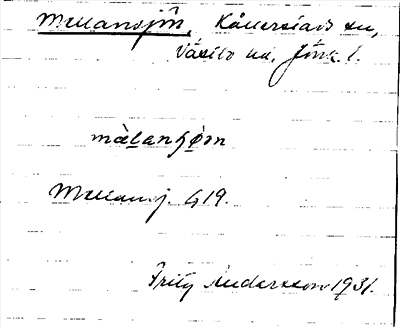 Mellansjön, Kållerstads sn,
Västbo hd, Jönk. l.
mälansjøn
Mellansj. G 19.
Fritz Andersson 1931.